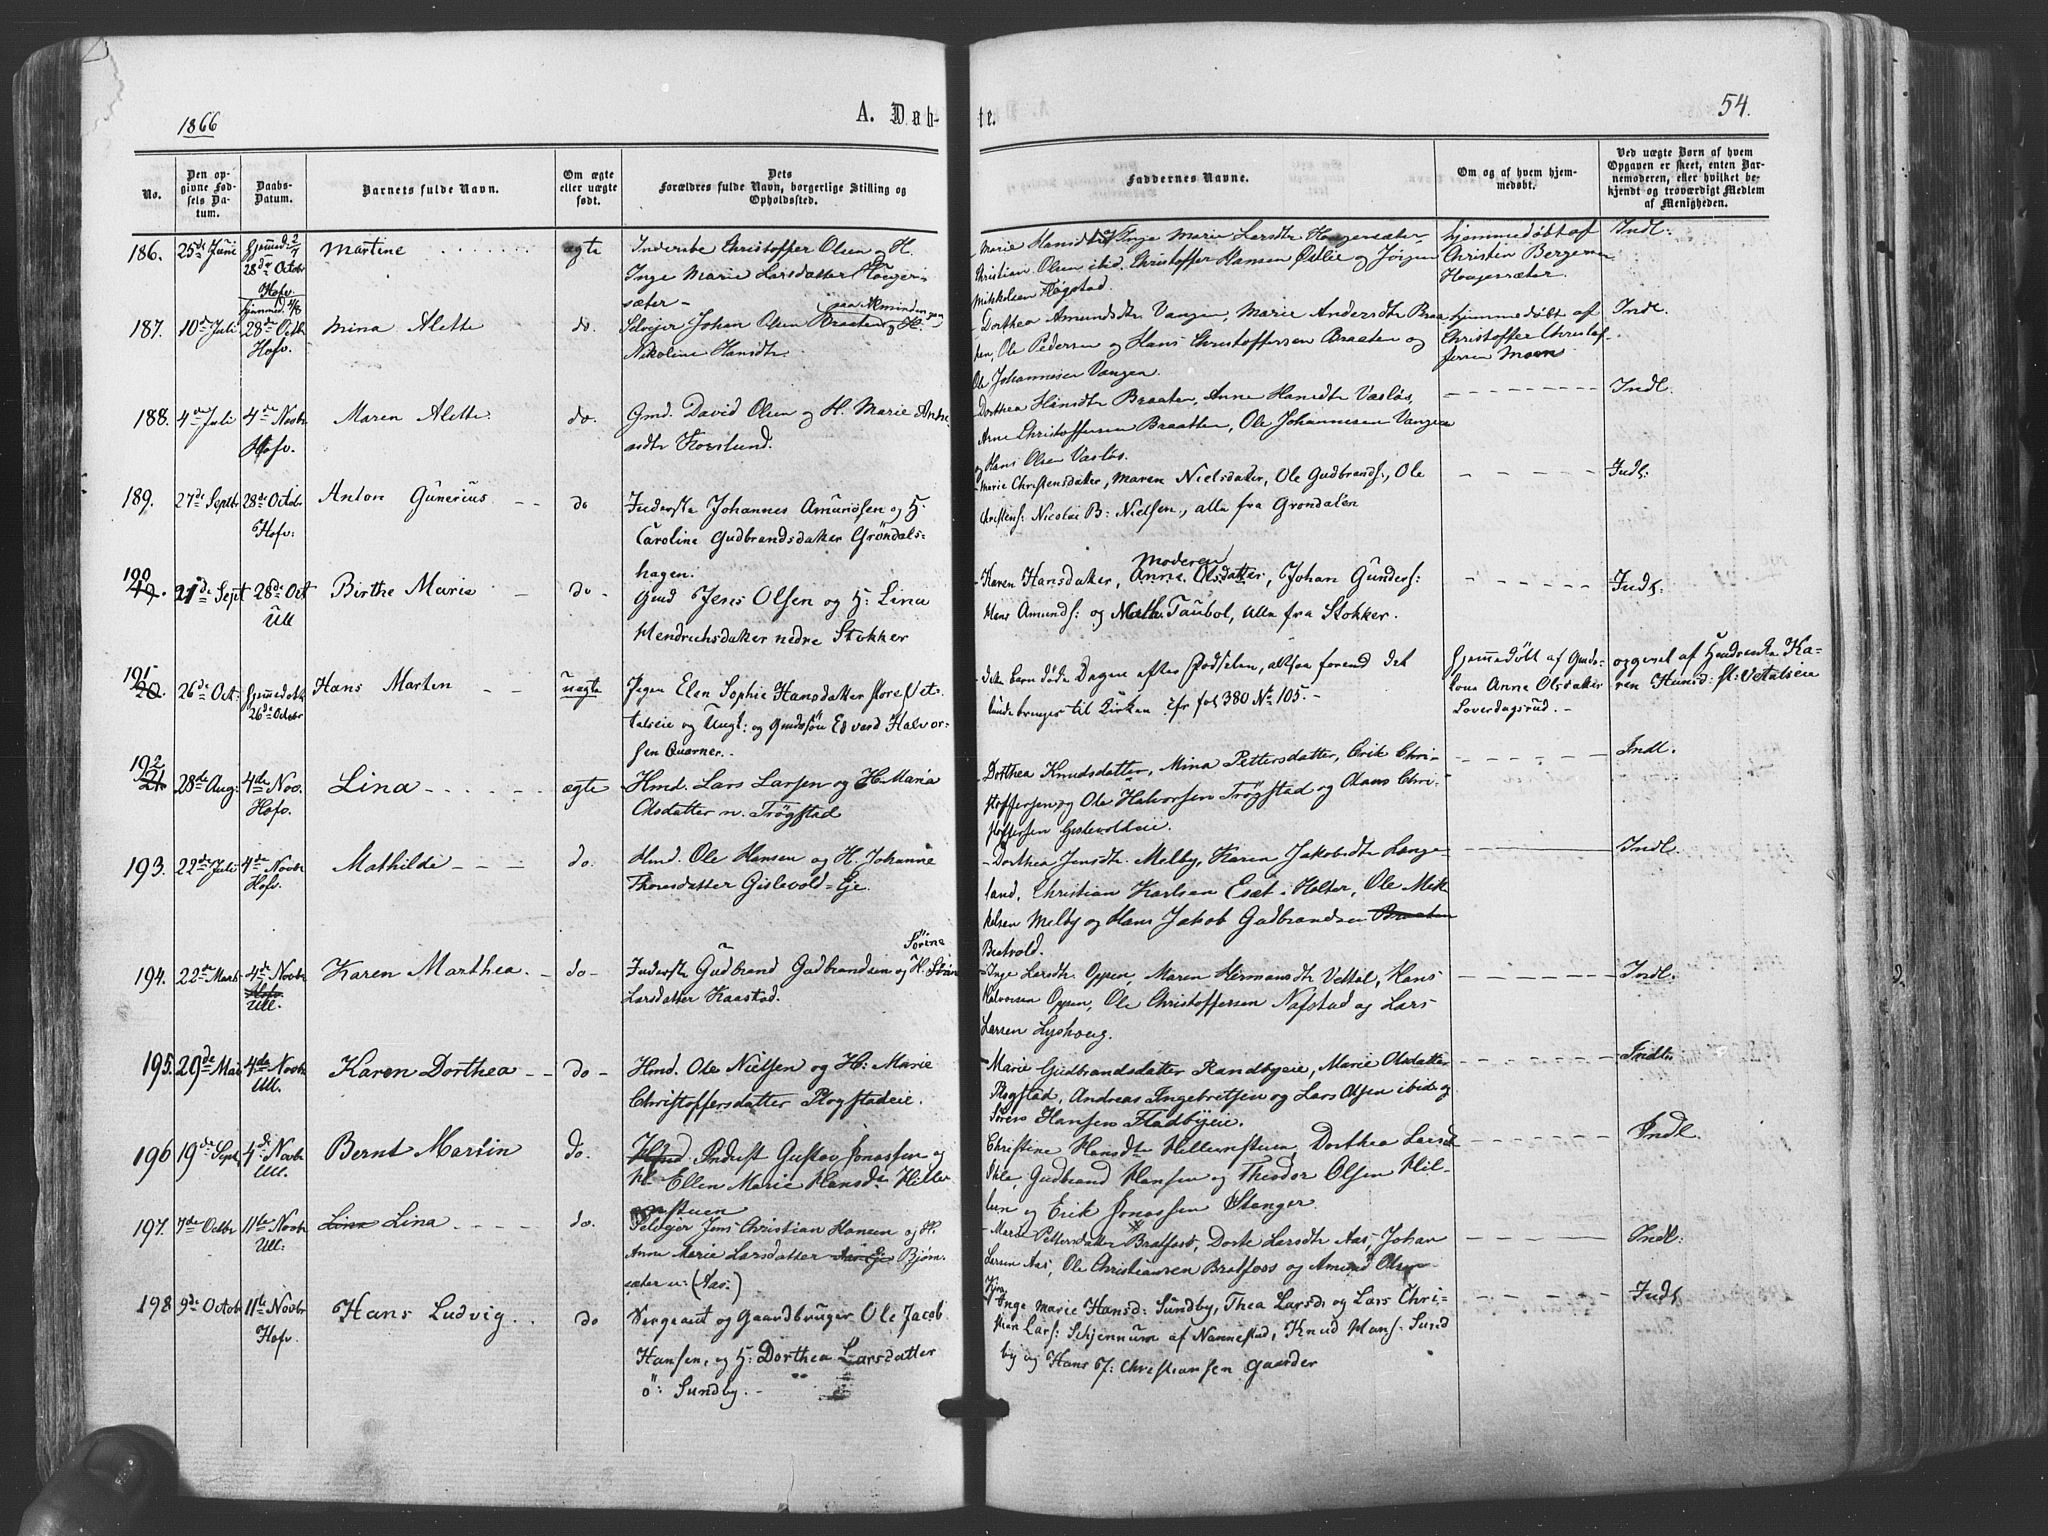 1866
A. Døb-
te.
54.
No.
Den op-
givne Fød-
sels Da-
tum.
Daabs-
Datum.
Barnets fulde Navn.
Om ægte
eller uægte
født.
Dets
Forældres fulde Navn, borgerlige Stilling og
Opholdssted.
Faddernes Navne.
Om og af hvem hjem-
medøbt.
Ved uægte Børn af hvem
Opgaven er skeet, enten Bar-
nemoderen, eller hvilket be-
kjendt og troværdigt Medlem
af Menigheden.
186. 25de Juni
28de Octobr
Hofv.
Martine
ægte
Inderste Christoffer Olsen og H.
Inge Marie Larsdatter Hoeger-
sæter
Marie Hansdtr Inge Marie Larsdtr Hoegersæter
Christian Olsen ibid. Christoffer Hansen Østlie og Jörgen
Mikkelsen Flogstad.
hjemmedöbt af
Christen Bergersen
Hoegersæter.
Indl.
187. 10de Juli
28de Octb
Hofv.
Mina Alette
do.
Selveier Johan Olsen Braaten og H.
paa Alminding
Nikoline Hansdtr
Dorthea Amundsdtr Vangen, Marie Andersdtr Braa
ten, Ole Pedersen og Hans Christoffersen Braaten og
Ole Johannesen Vangen.
hjemmedöbt af
Christoffer Christof
fersen Moen
Indl.
188. 4de Juli
4de Novbr
Hofv.
Maren Alette
do.
Gmd. David Olsen og H. Marie Andre
asdtr Korslund.
Dorthea Hansdtr Braaten, Anne Hansdtr Vaslös,
Arne Christoffersen Braatten, Ole Johannesen Vangen
og Hans Olsen Vaslös.
Indl.
189. 27de Septbr
28de Octobr
Hofv:
Anton Gunerius
do
Inderste Johannes Amundsen og H:
Caroline Gudbrandsdatter Gröndals-
hagen.
Marie Christensdatter, Maren Nielsdatter, Ole Gudbrands:, Ole
Christens: Nicolai B: Nielsen, alle fra Grondalen
Indl.
190
21de Sept
28de Oct
Ull
Birthe Marie
do
Gmd Jens Olsen og H: Lina
Hendrichsdatter nedre Stokker
Moderen
Karen Hansdatter, Anne Olsdatter, Johan Gunders:
Hans Amunds: og Math: Taubol, alle fra Stokker.
Indl.
191
20.
26de Oct:
Hjemmedöbt
26de Octobr
Hans Marten
uægte
Pigen Elen Sophie Hansdatter store Vet-
talseie og Ungk: og Gmdssön Edvard Halvor-
sen Quarner.
dette Barn døde Dagen efter Födselen, altsaa forend det
kunde bringes til Kirken cfr fol 380 No 105.
Hjemmedöbt af Gmds-
kone Anne Olsdatter
Loverdagsrud.
opgivet af Huusmandsk Ka-
ren Hansd: st: Vetalseie
192
21.
28de Aug:
4de Nov.
Hofv.
Lina
ægte
Hmd. Lars Larsen og H. Maria
Olsdatter n. Trögstad
Dorthea Knudsdatter, Mina Pettersdatter, Erik Chri-
stoffersen og Ole Halvorsen Trögstad og Hans Chri-
stoffersen Gislevoldeie.
Indl.
193. 22de Juli
4de Novbr
Hofv.
Mathilde
do.
Hmd. Ole Hansen og H. Johanne
Thoresdatter Gislevold-Eje.
Dorthea Jensdtr. Melby, Karen Jakobsdtr Lange-
land, Christian Karlsen Eset i Holter, Ole Mik
kelsen Melby og Hans Jakob Gudbrandsen Braaten
Bestvold.
Indl.
194. 22de Marts
4de Novbr
Hofv.
Ull.
Karen Marthea.
do
Sörine
Inderste Gudbrand Gudbrandsen og H.
Larsdatter Kaastad.
Inge Larsdtr. Oppen, Maren Hermansdtr Vettal, Hans
Halvorsen Oppen, Ole Christoffersen Nafstad og Lars
Larsen Lyshoug.
Indl.
195. 29de Mai
4de Novbr
Ull.
Karen Dorthea
do
Hmd. Ole Nielsen og H: Marie
Christoffersdatter Flogstadeie.
Marie Gudbrandsdatter Randbyeie, Marie Olsdatter
Flogstad, Andreas Ingebretsen og Lars Olsen ibid og
Sören Hansen Fladbyeie.
Indl.
196 19de Sept.
4de Novbr
Ull.
Bernt Martin
do.
Hmd. Inderst Gustav Jonassen og
H. Ellen Marie Hansd. Hiller
enstuen
Christine Hansdtr Hillerenstuen, Dorthea Larsd
Gudbrand Hansen og Theodor Olsen Hil-
len og Erik Jonassen Stenger.
Indl.
197. 7de Octbr
11te Novbr
Ull:
Lina Lina
do.
Selveier Jens Christian Hansen og H.
Anne Marie Larsdatter Aas-Eje Björn-
sæter u: (Aas.)
Marie Pettersdatter Bratfoss, Dorte Larsdtr Aas, Johan
Larsen Aas, Ole Christiansen Bratfoss og Amund Olsen
Indl.
198 9de Octob
11te Novbr
Hofv.
Hans Ludvig
do
Sergeant og Gaardbruger Ole Jacob
Hansen, og H: Dorthea Larsdatter
ö: Sundby.
Inge Marie Hansd: Sundby, Thea Larsd: og Lars Chri-
stian Lars: Schjennum af Nannestad, Knud Hans: Sund
by og Hans J: Christiansen Gaarder
Indl